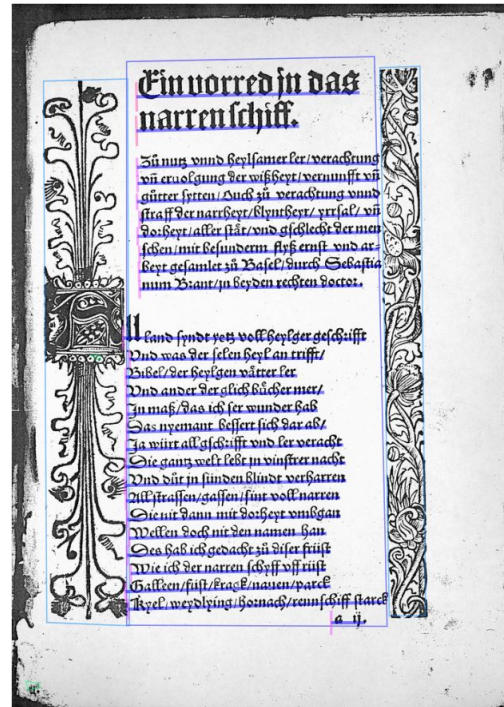 Ein vorred jn das
narren schiff.
Zů nutz vnnd heylsamer ler / verachtung
vñ eruolgung der wißheyt / vernunfft vñ
gůtter sytten / Ouch zů verachtung vnnd
straff der narrheyt / blyntheyt / yrrsal / vñ
dorheyt / aller ståt / vnd gschlecht der men
schen / mit besunderm flyß ernst vnd ar-
beyt gesamlet zů Basel / durch Sebastia
num Brant / jn beyden rechten doctor.
All land syndt yetz voll heylger geschrifft
Vnd was der selen heyl an trifft /
Bibel / der heylgen våtter ler
Vnd ander der glich bůcher mer /
Jn maß / das ich ser wunder hab
Das nyemant bessert sich dar ab /
Ja würt all gschrifft vnd ler veracht
Die gantz welt lebt in vinstrer nacht
Vnd důt in sünden blindt verharren
All strassen / gassen / sint voll narren
Die nit dann mit dorheyt vmbgan
Wellen doch nit den namen han
Des hab ich gedacht zů diser früst
Wie ich der narren schyff vff rüst
Galleen / füst / kragk / nauen / parck
Kyel / weydlying / hornach / rennschiff starck
a ij.